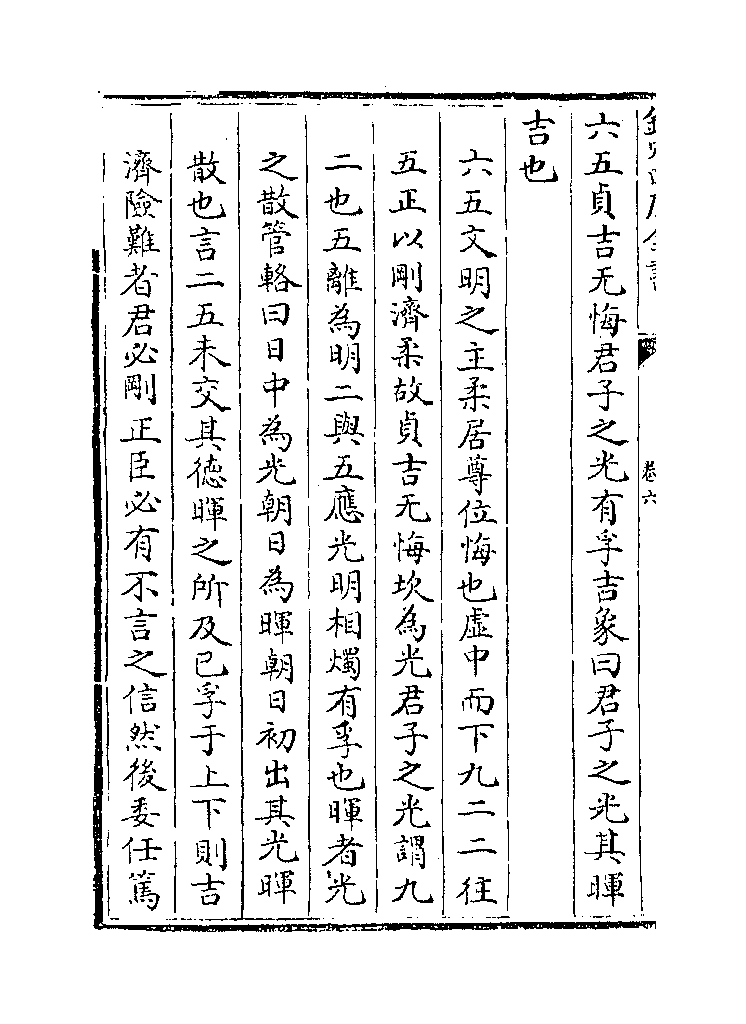 欽定四庫全書
卷六
六五貞吉无悔君子之光有孚吉象曰君子之光其暉
吉也
六五文明之主柔居尊位悔也虛中而下九二二往
五正以剛濟柔故貞吉无悔坎為光君子之光謂九
二也五離為明二與五應光明相燭有孚也暉者光
之散管輅曰日中為光朝日為暉朝日初出其光暉
散也言二五未交其德暉之所及已孚于上下則吉
濟險難者君必剛正臣必有不言之信然後委任篤